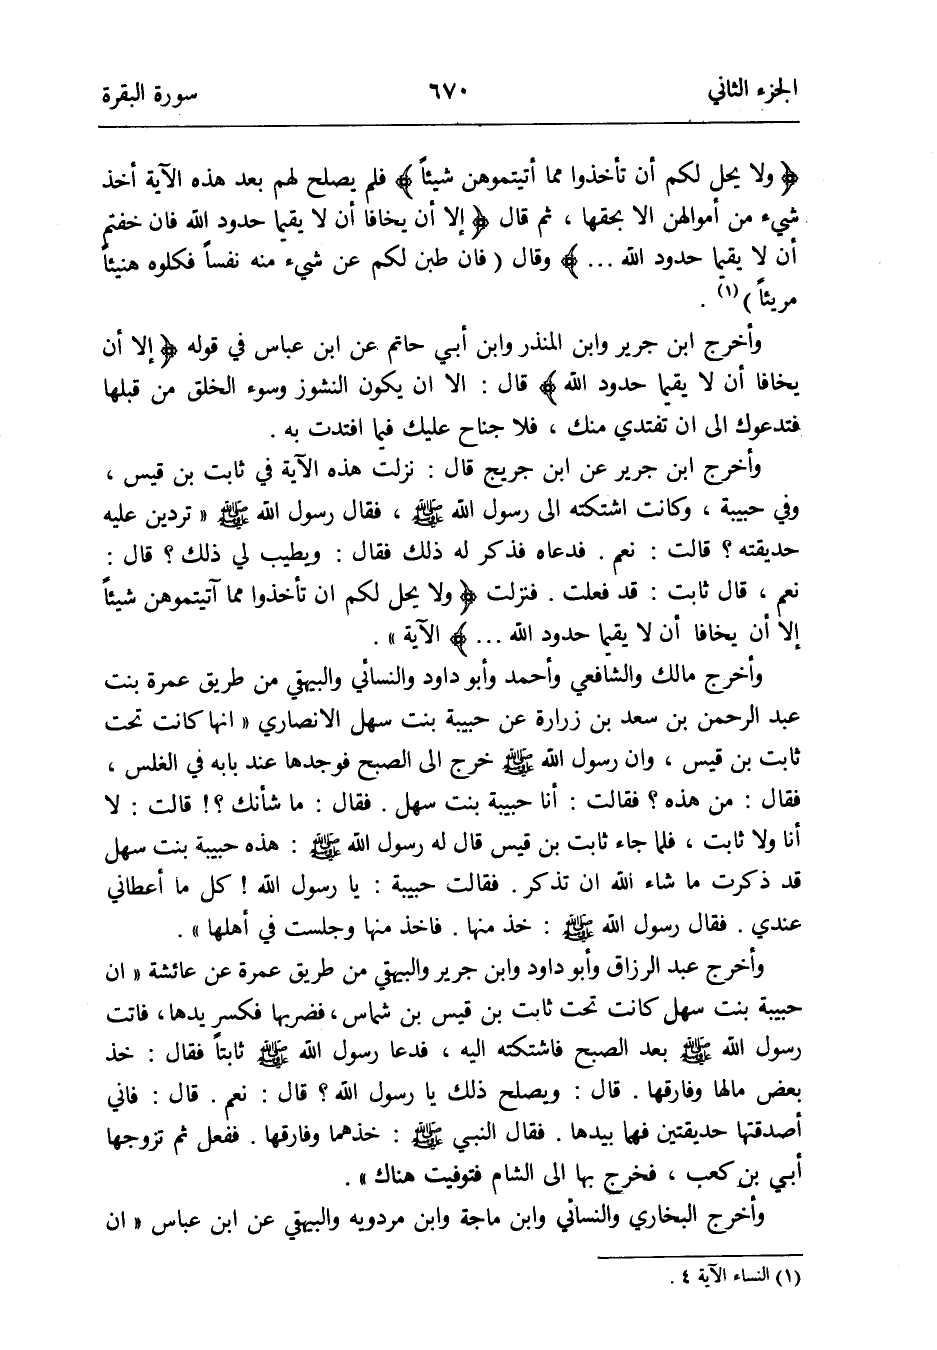 الجزء الثاني ٦٧٠ سورة البقرة
﴿ ولا يحل لكم أن تأخذوا مما أتيتموهن شيئاً ﴾ فلم يصلح لهم بعد هذه الآية أخذ
شيء من أموالهن الا بحقها ، ثم قال ﴿ إلا أن يخافا أن لا يقيما حدود الله فان خفتم
أن لا يقيما حدود الله ... ﴾ وقال ( فان طبن لكم عن شيء منه نفساً فكلوه هنيئاً
مريئاً ) (١) .
وأخرج ابن جرير وابن المنذر وابن أبي حاتم عن ابن عباس في قوله ﴿ إلا أن
يخافا أن لا يقيما حدود الله ﴾ قال : الا ان يكون النشوز وسوء الخلق من قبلها
فتدعوك الى ان تفتدي منك ، فلا جناح عليك فيما افتدت به .
وأخرج ابن جرير عن ابن جريج قال : نزلت هذه الآية في ثابت بن قيس ،
وفي حبيبة ، وكانت اشتكته الى رسول الله ﷺ ، فقال رسول الله ﷺ « تردين عليه
حديقته ؟ قالت : نعم . فدعاه فذكر له ذلك فقال : ويطيب لي ذلك ؟ قال :
نعم ، قال ثابت : قد فعلت . فنزلت ﴿ ولا يحل لكم ان تأخذوا مما آتيتموهن شيئاً
إلا أن يخافا أن لا يقيما حدود الله ... ﴾ الآية » .
وأخرج مالك والشافعي وأحمد وأبو داود والنسائي والبيهقي من طريق عمرة بنت
عبد الرحمن بن سعد بن زرارة عن حبيبة بنت سهل الانصاري « انها كانت تحت
ثابت بن قيس ، وان رسول الله ﷺ خرج الى الصبح فوجدها عند بابه في الغلس ،
فقال : من هذه ؟ فقالت : أنا حبيبة بنت سهل . فقال : ما شأنك ؟! قالت : لا
أنا ولا ثابت ، فلما جاء ثابت بن قيس قال له رسول الله ﷺ : هذه حبيبة بنت سهل
قد ذكرت ما شاء الله ان تذكر . فقالت حبيبة : يا رسول الله ! كل ما أعطاني
عندي . فقال رسول الله ﷺ : خذ منها . فاخذ منها وجلست في أهلها » .
وأخرج عبد الرزاق وأبو داود وابن جرير والبيهقي من طريق عمرة عن عائشة « ان
حبيبة بنت سهل كانت تحت ثابت بن قيس بن شماس ، فضربها فكسر يدها ، فاتت
رسول الله ﷺ بعد الصبح فاشتكته اليه ، فدعا رسول الله ﷺ ثابتاً فقال : خذ
بعض مالها وفارقها . قال : ويصلح ذلك يا رسول الله ؟ قال : نعم . قال : فاني
أصدقتها حديقتين فهما بيدها . فقال النبي ﷺ : خذهما وفارقها . ففعل ثم تزوجها
أبي بن كعب ، فخرج بها الى الشام فتوفيت هناك » .
وأخرج البخاري والنسائي وابن ماجة وابن مردويه والبيهقي عن ابن عباس « ان
(١) النساء الآية ٤ .